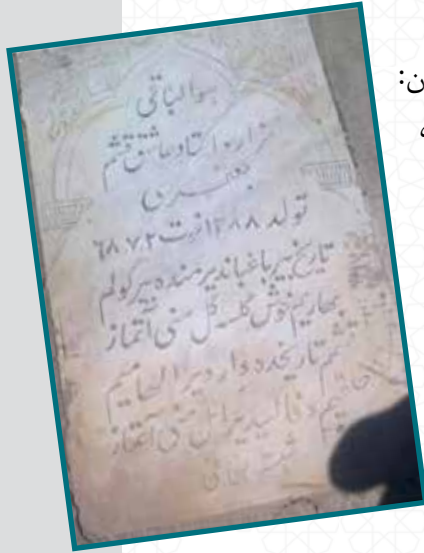 ن:
،
هوالباقی
مزار استاد عاشق قشم
جعفری
تولد ۱۲۸۸ فوت ۶۸،۷،۲
تاریخ بیر باغباندیر منده بیر گولم
بهاریم خوش گلسه گل منی آتماز
قشم تاریخده وار دیر الهامیم
ائل منی آتماز